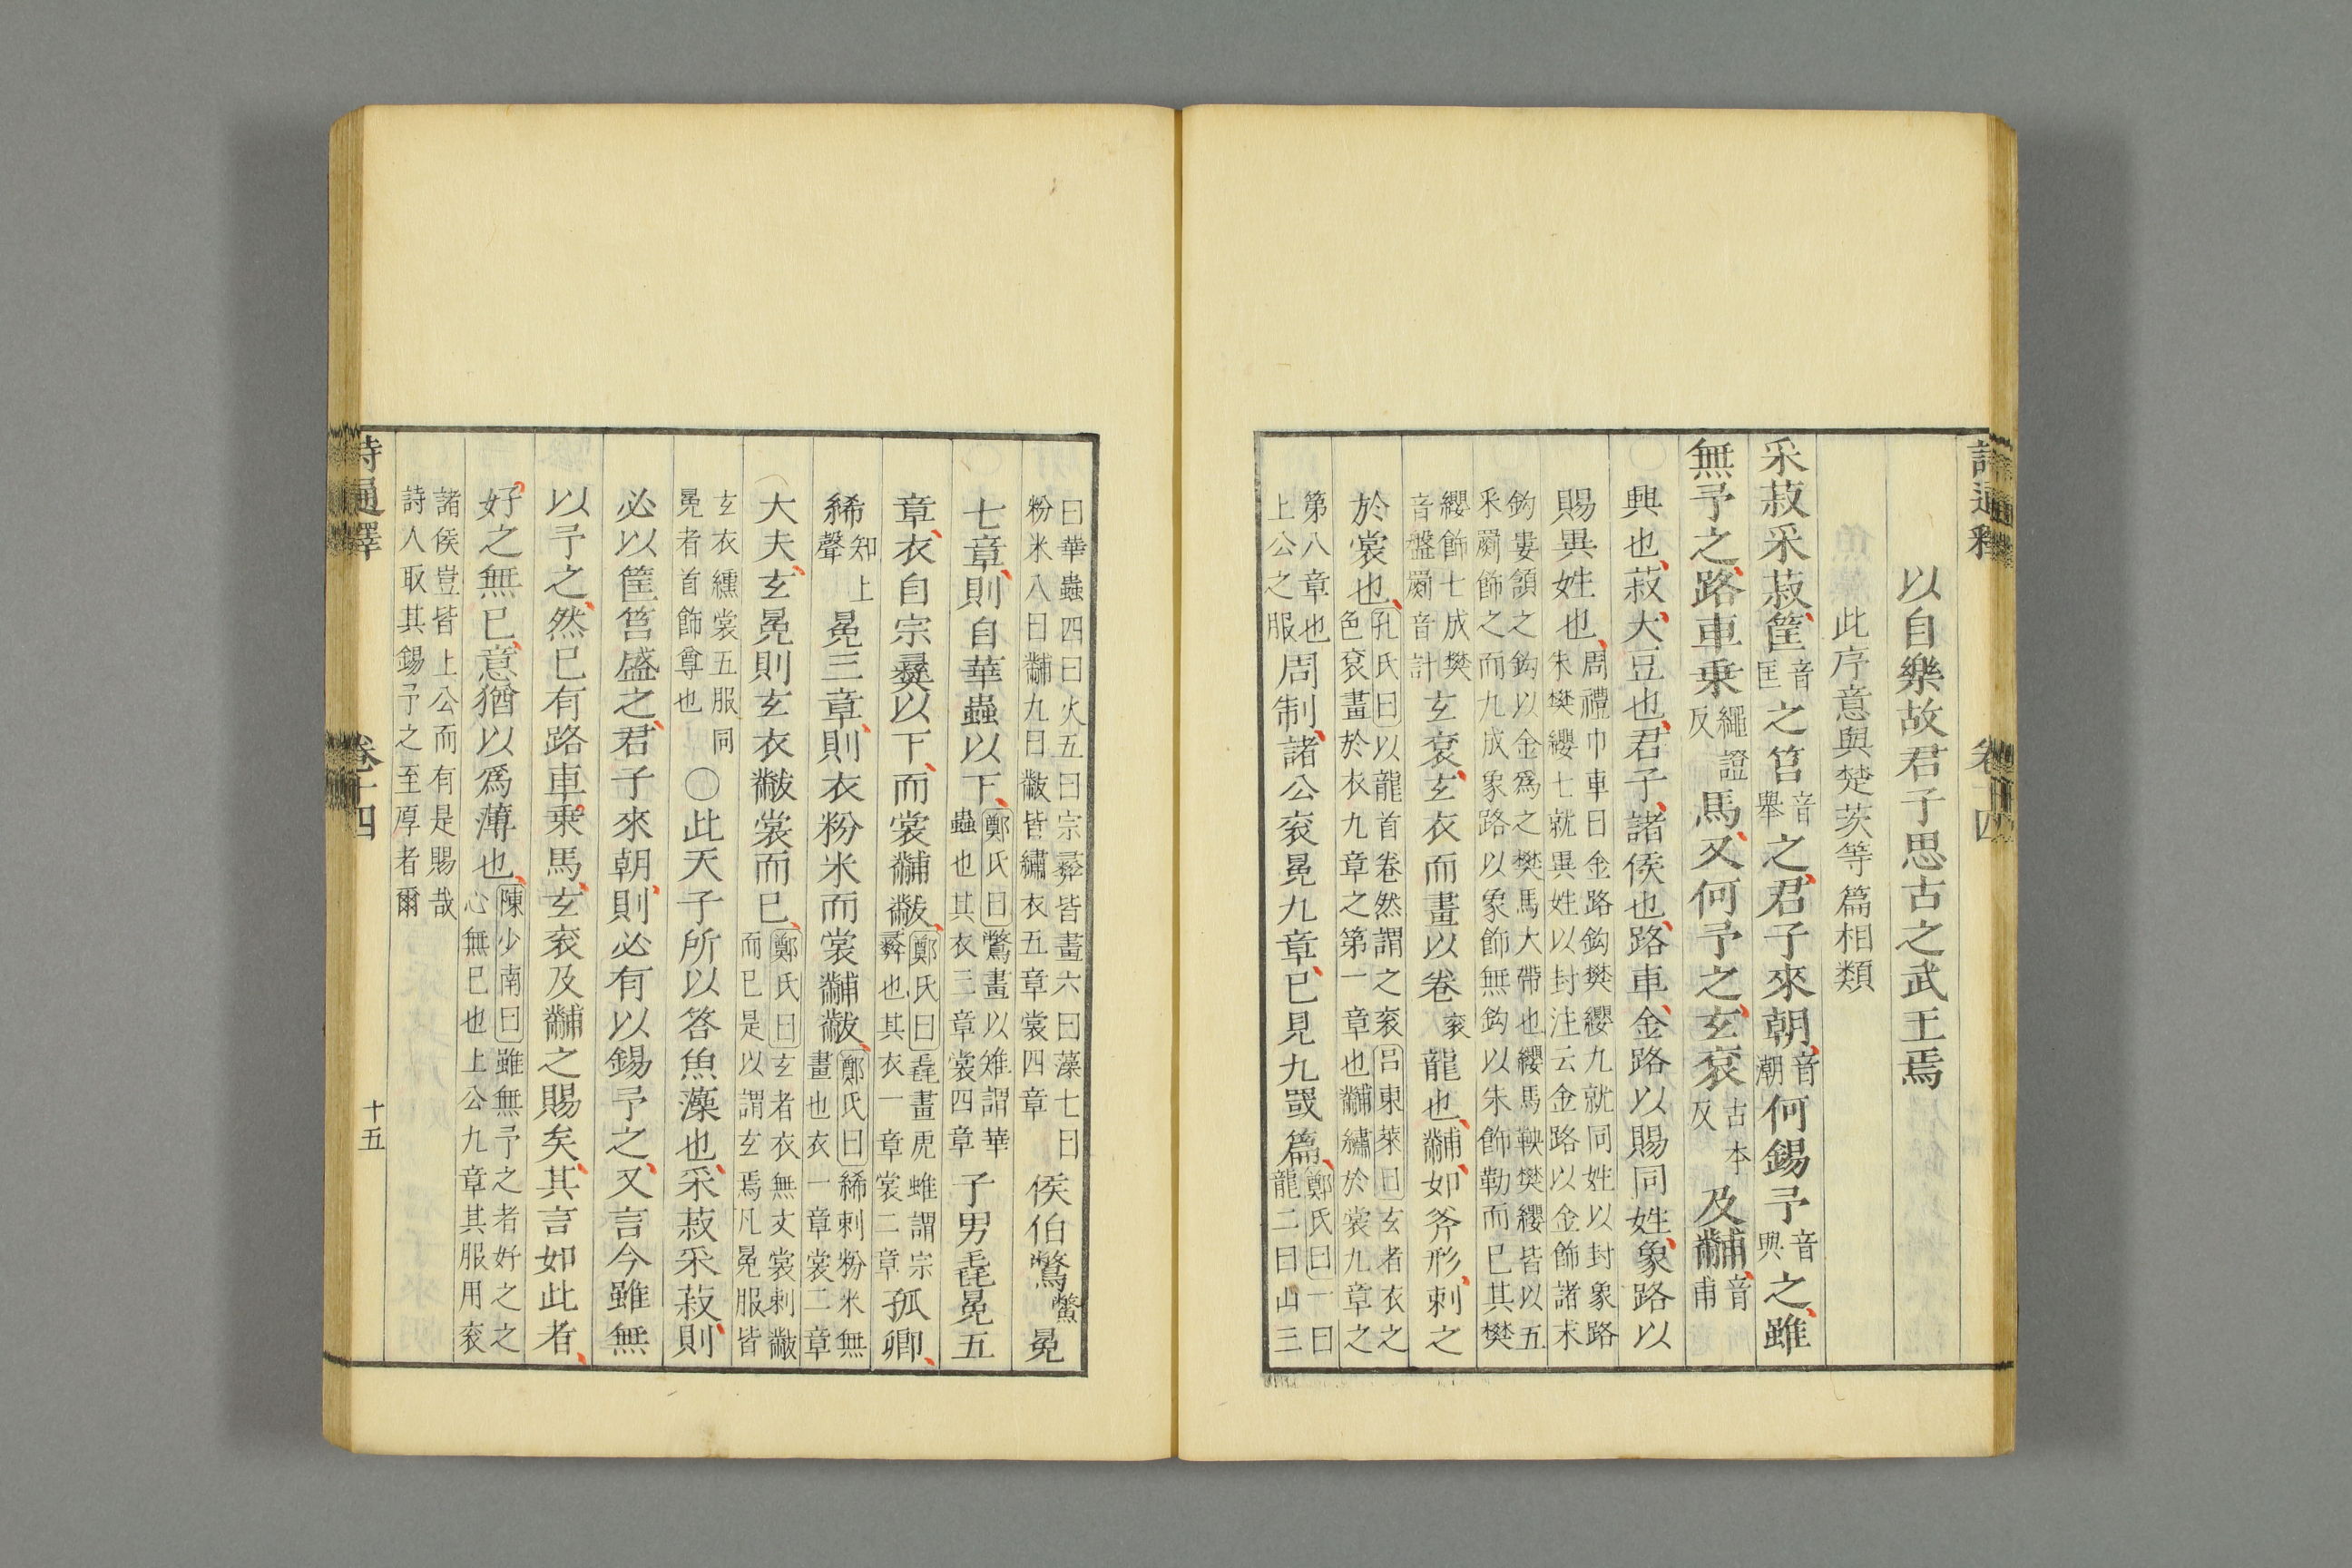 以自樂故君子思古之武王焉
此序意與楚茨等篇相類
采菽采菽筐音匡之筥音舉之君子來朝音潮何錫予音與之雖
無予之路車乘繩證反馬又何予之玄袞古本反及黼音甫
○興也菽大豆也君子諸侯也路車金路以賜同姓象路以
賜異姓也周禮巾車曰金路鉤樊纓九就同姓以封象路
朱樊纓七就異姓以封注云金路以金飾諸末
鉤婁頷之鉤以金爲之樊馬大帶也纓馬鞅樊纓皆以五
采罽飾之而九成象路以象飾無鉤以朱飾勒而已其樊
纓飾七成樊
音盤罽音計玄袞玄衣而畫以卷袞龍也黼如斧形刺之
於裳也孔氏曰以龍首卷然謂之袞呂東萊曰玄者衣之
色袞畫於衣九章之第一章也黼繡於裳九章之
第八章也
上公之服周制諸公袞冕九章已見九罭篇鄭氏曰一曰
龍二曰山三
曰華蟲四曰火五曰宗彝皆畫六曰藻七曰
粉米八曰黼九曰黻皆繡衣五章裳四章侯伯鷩鷩冕
七章則自華蟲以下鄭氏曰鷩畫以雉謂華
蟲也其衣三章裳四章子男毳冕五
章衣自宗彝以下而裳黼黻鄭氏曰毳畫虎蜼謂宗
彝也其衣一章裳二章孤卿
絺知上聲冕三章則衣粉米而裳黼黻鄭氏曰絺刺粉米無
畫也衣一章裳二章
大夫玄冕則玄衣黻裳而已鄭氏曰玄者衣無文裳刺黻
而已是以謂玄焉凡冕服皆
玄衣纁裳五服同
冕者首飾尊也○此天子所以答魚藻也采菽采菽則
必以筐筥盛之君子來朝則必有以錫予之又言今雖無
以予之然已有路車乘馬玄袞及黼之賜矣其言如此者
好之無已意猶以爲薄也陳少南曰雖無予之者好之之
心無已也上公九章其服用袞
諸侯豈皆上公而有是賜哉
詩人取其錫予之至厚者爾
詩通釋
卷十四
十五